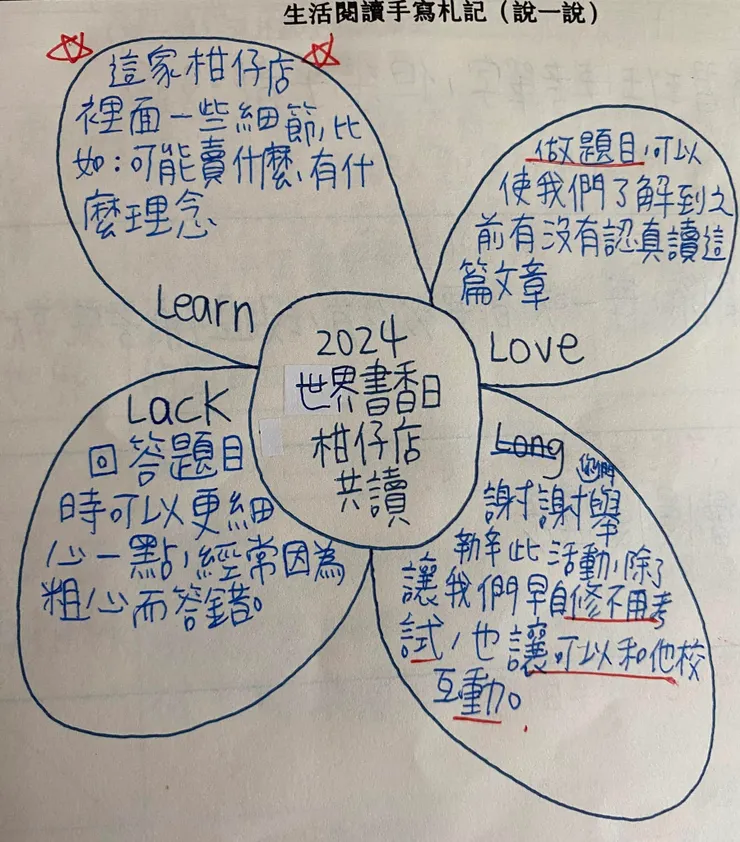 生活閱讀手寫札記（說一說）
這家柑仔店
裡面一些細節，比
如：可能賣什麼、有什
麼理念
Learn
做題目，可以
使我們了解到之
前有沒有認真讀這
篇文章
Love
2024
世界書香日
柑仔店
共讀
Lack
回答題目
時可以更細
心一點，經常因為
粗心而答錯。
Long
你們
謝謝舉
辦此活動，除了
讓我們早自修不用考
試，也讓可以和他校
互動。